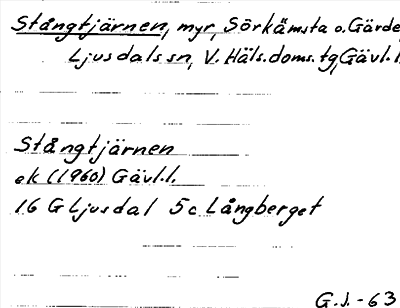 Stångtjärnen, myr, Sörkämsta o. Gärde
Ljusdals sn, V. Häls. doms. tg, Gävl. l.
Stångtjärnen
ek (1960) Gävl. l.
16 G Ljusdal 5c Långberget
G.J.-63